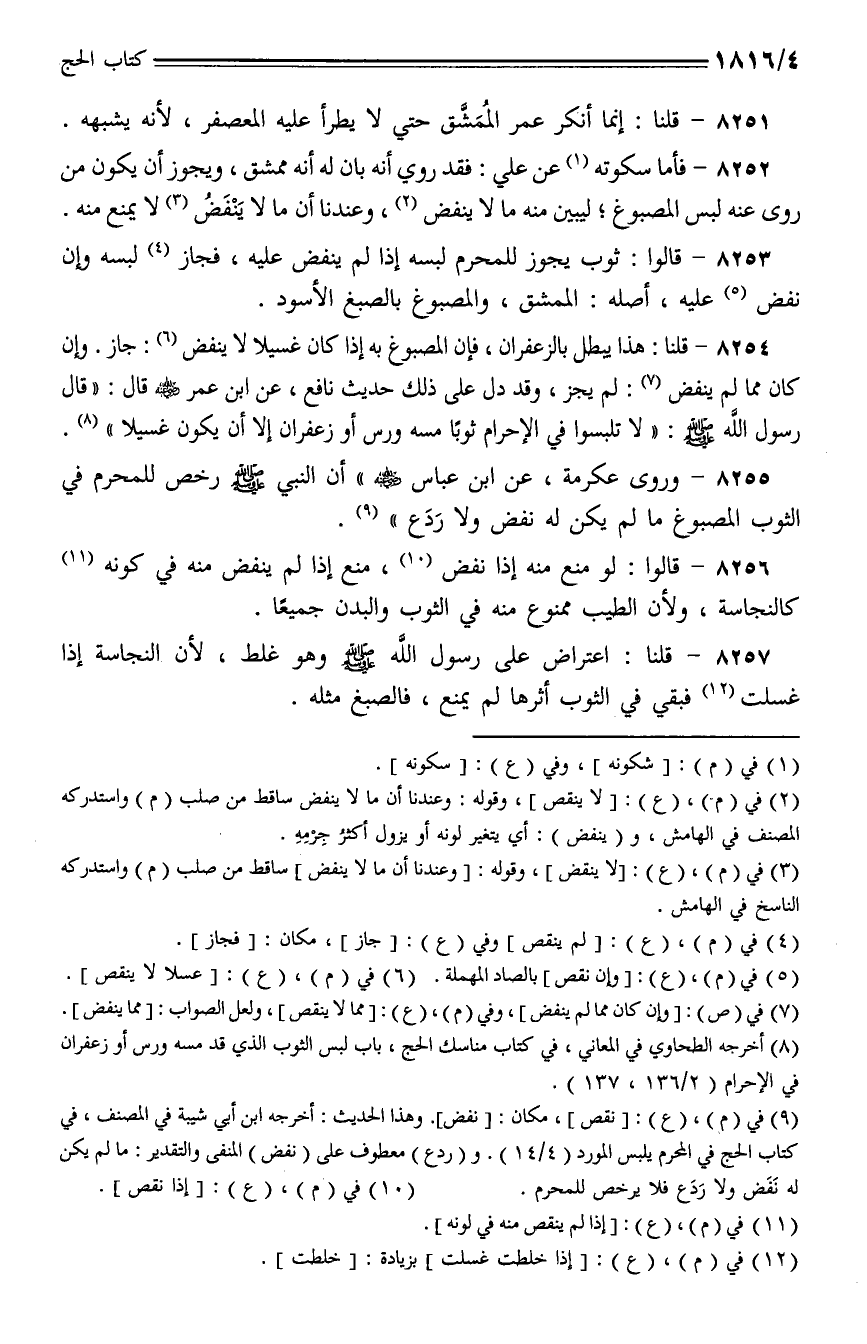 ١٨١٦/٤ كتاب الحج
٨٢٥١ – قلنا : إنما أنكر عمر المُمَشَّق حتي لا يطرأ عليه المعصفر ، لأنه يشبهه .
٨٢٥٢ – فأما سكوته (١) عن علي : فقد روي أنه بان له أنه ممشق ، ويجوز أن يكون من
روى عنه لبس المصبوغ ؛ ليبين منه ما لا ينفض (٢) ، وعندنا أن ما لا يَنْفَضُ (٣) لا يمنع منه .
٨٢٥٣ – قالوا : ثوب يجوز للمحرم لبسه إذا لم ينفض عليه ، فجاز (٤) لبسه وإن
نفض (٥) عليه ، أصله : الممشق ، والمصبوغ بالصبغ الأسود .
٨٢٥٤ – قلنا : هذا يبطل بالزعفران ، فإن المصبوغ به إذا كان غسيلا لا ينفض (٦) : جاز . وإن
كان مما لم ينفض (٧) : لم يجز ، وقد دل على ذلك حديث نافع ، عن ابن عمر ﷺ قال : « قال
رسول اللَّه ﷺ : « لا تلبسوا في الإحرام ثوبًا مسه ورس أو زعفران إلا أن يكون غسيلا » (٨) .
٨٢٥٥ – وروى عكرمة ، عن ابن عباس ﷺ » أن النبي ﷺ رخص للمحرم في
الثوب المصبوغ ما لم يكن له نفض ولا رَدَع » (٩) .
٨٢٥٦ – قالوا : لو منع منه إذا نفض (١٠) ، منع إذا لم ينفض منه في كونه (١١)
كالنجاسة ، ولأن الطيب ممنوع منه في الثوب والبدن جميعًا .
٨٢٥٧ – قلنا : اعتراض على رسول اللَّه ﷺ وهو غلط ، لأن النجاسة إذا
غسلت (١٢) فبقي في الثوب أثرها لم يمنع ، فالصبغ مثله .
(١) في ( م ) : [ شكونه ] ، وفي ( ع ) : [ سكونه ] .
(٢) في ( م ) ، ( ع ) : [ لا ينقص ] ، وقوله : وعندنا أن ما لا ينفض ساقط من صلب ( م ) واستدركه
المصنف في الهامش ، و ( ينفض ) : أي يتغير لونه أو يزول أكثرُ جِرْمِهِ .
(٣) في ( م ) ، ( ع ) : [لا ينقض ] ، وقوله : [ وعندنا أن ما لا ينفض ] ساقط من صلب ( م ) واستدركه
الناسخ في الهامش .
(٤) في ( م ) ، ( ع ) : [ لم ينقص ] وفي ( ع ) : [ جاز ] ، مكان : [ فجاز ] .
(٥) في ( م ) ، ( ع ) : [ وإن نقص ] بالصاد المهملة . (٦) في ( م ) ، ( ع ) : [ عسلا لا ينقص ] .
(٧) في ( ص ) : [ وإن كان مما لم ينفض ] ، وفي ( م ) ، ( ع ) : [ مما لا ينقص ] ، ولعل الصواب : [ مما ينفض ] .
(٨) أخرجه الطحاوي في المعاني ، في كتاب مناسك الحج ، باب لبس الثوب الذي قد مسه ورس أو زعفران
في الإحرام ( ١٣٦/٢ ، ١٣٧ ) .
(٩) في ( م ) ، ( ع ) : [ نقص ] ، مكان : [ نفض]. وهذا الحديث : أخرجه ابن أبي شيبة في المصنف ، في
كتاب الحج في المحرم يلبس المورد ( ١٤/٤ ) . و ( ردع ) معطوف على ( نفض ) المنفى والتقدير : ما لم يكن
له نَفَض ولا رَدَع فلا يرخص للمحرم . (١٠) في ( م ) ، ( ع ) : [ إذا نقص ] .
(١١) في ( م ) ، ( ع ) : [ إذا لم ينقص منه في لونه ] .
(١٢) في ( م ) ، ( ع ) : [ إذا خلطت غسلت ] بزيادة : [ خلطت ] .